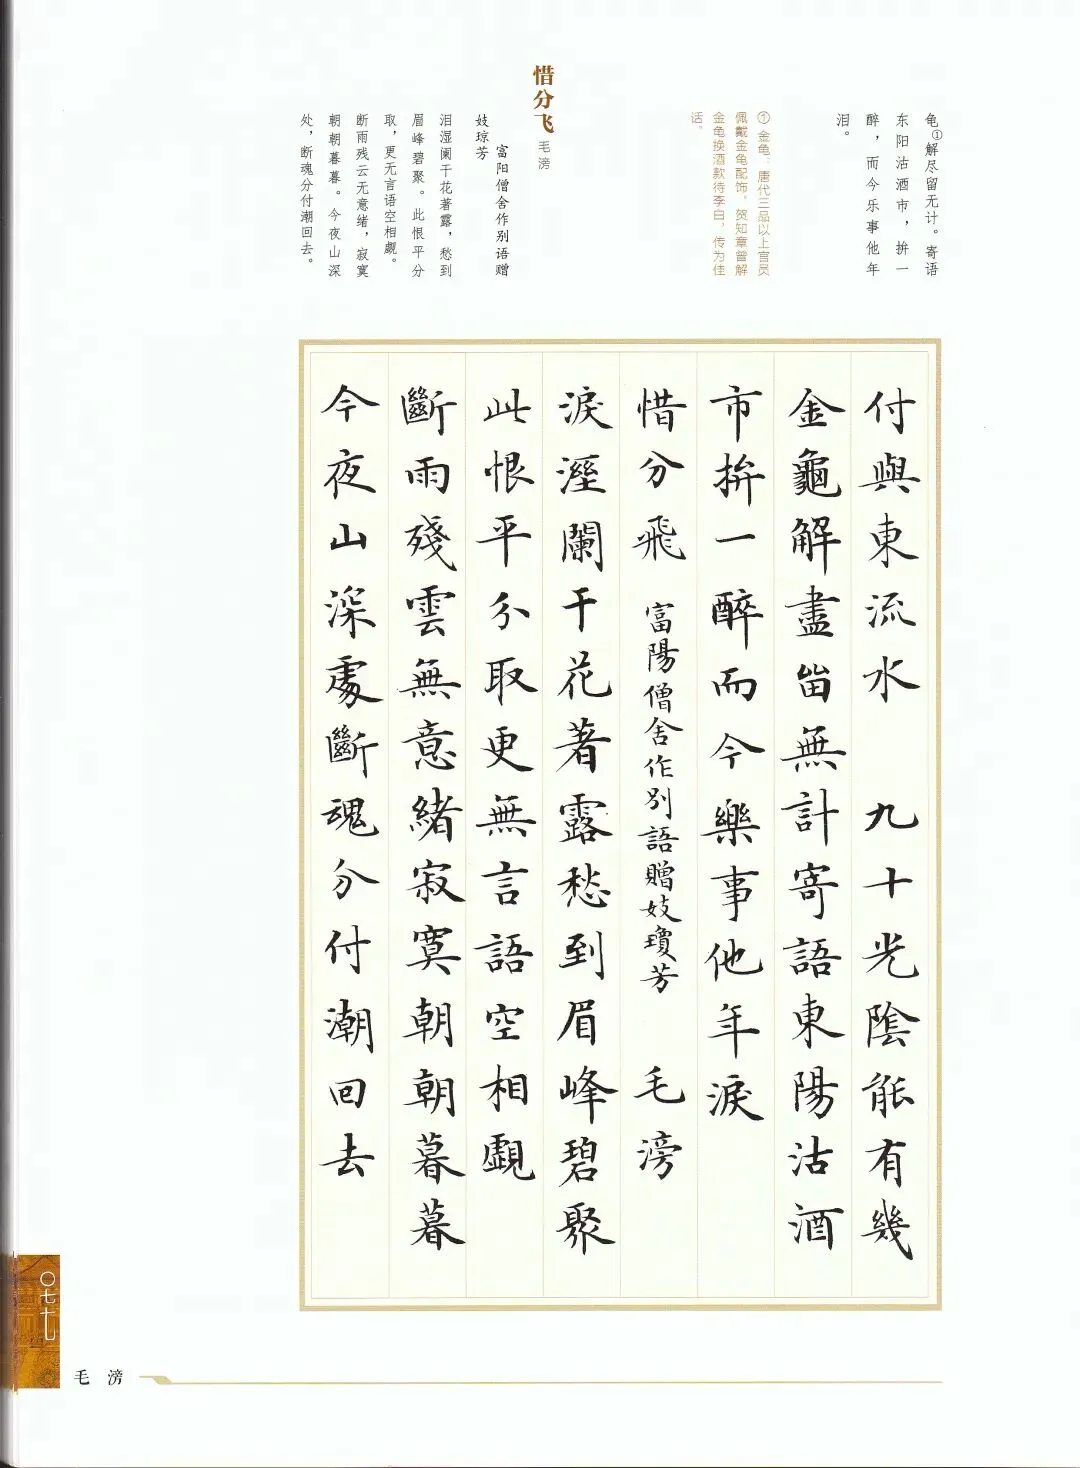 龟①解尽留无计。寄语
东阳沽酒市，拚一
醉，而今乐事他年
泪。
①金龟：唐代三品以上官员
佩戴金龟配饰，贺知章曾解
金龟换酒款待李白，传为佳
话。
惜分飞 毛滂
富阳僧舍作别语赠
妓琼芳
泪湿阑干花著露，愁到
眉峰碧聚。此恨平分
取，更无言语空相觑。
断雨残云无意绪，寂寞
朝朝暮暮。今夜山深
处，断魂分付潮回去。
付與東流水 九十光陰能有幾
金龜解盡畱無計寄語東陽沽酒
市拚一醉而今樂事他年淚
惜分飛 富陽僧舍作別語贈妓瓊芳 毛滂
淚溼闌干花著露愁到眉峰碧聚
此恨平分取更無言語空相覷
斷雨殘雲無意緒寂寞朝朝暮暮
今夜山深處斷魂分付潮回去
〇七七
毛滂